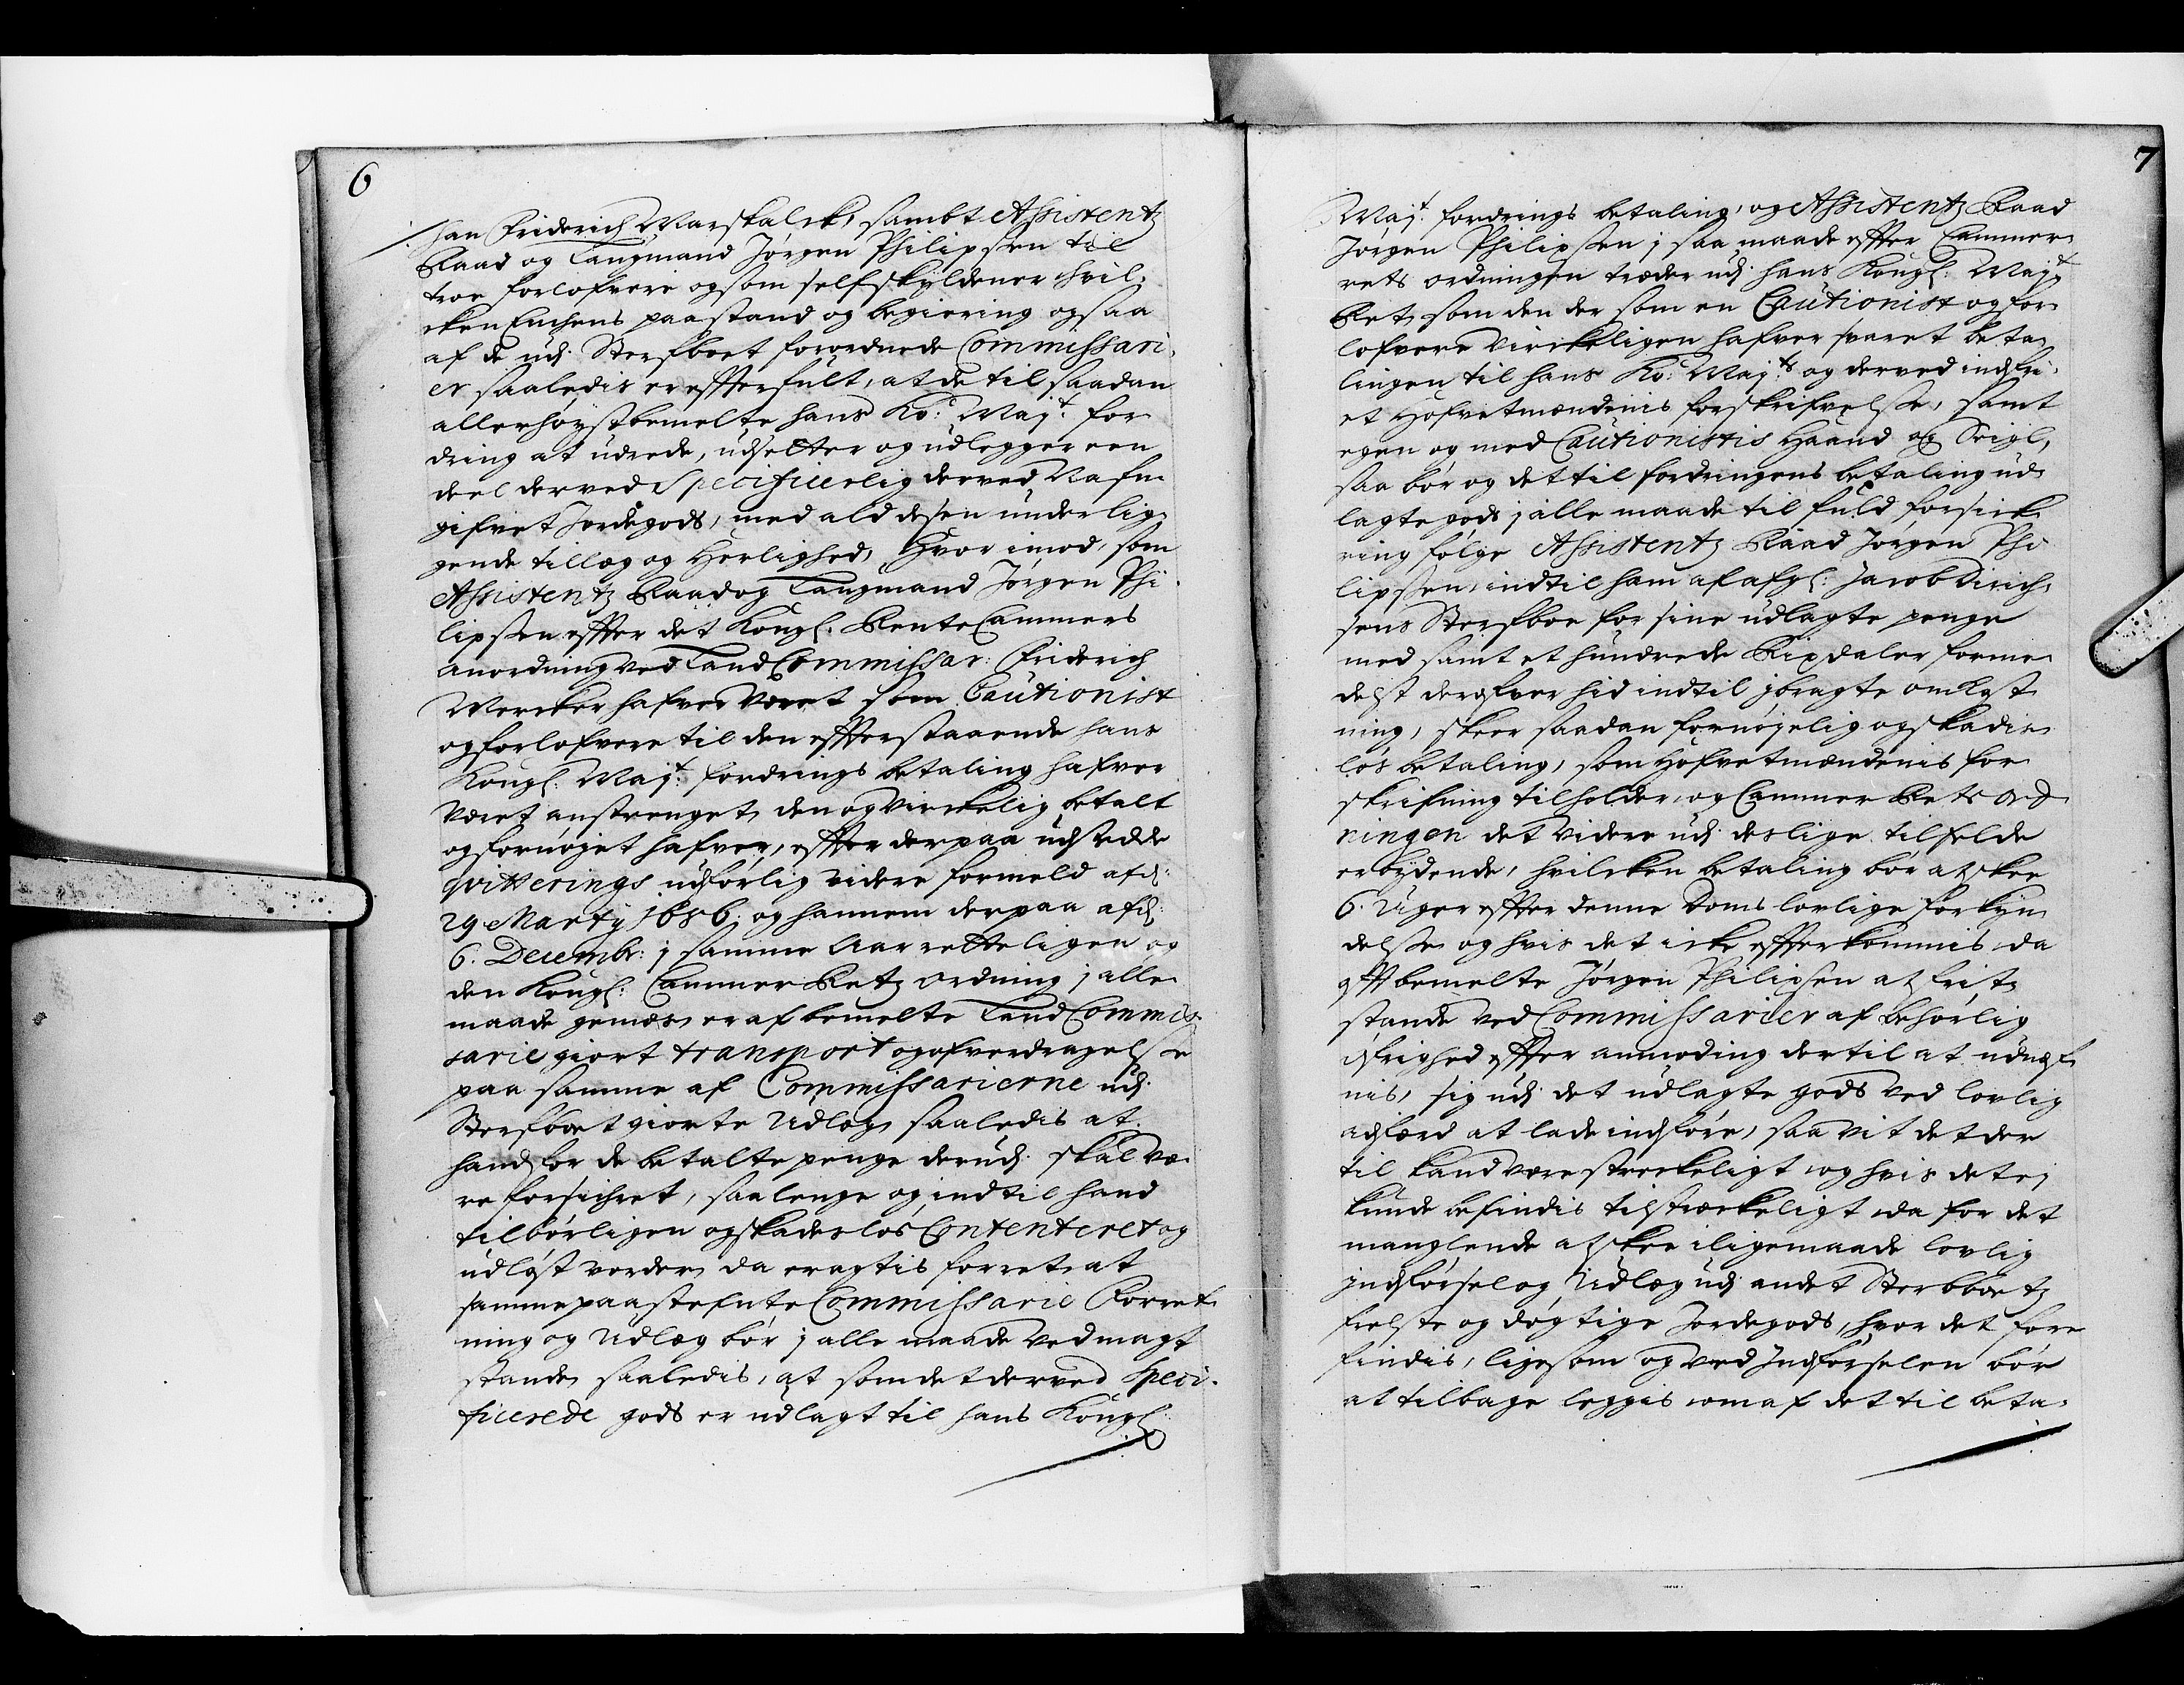 6
han Friderich Marskalck, sambt Assistentz
Raad og Laugmand Jørgen Philipsen til
troe forlofvere og som selfskyldener hvil¬
cken Enchens paastand og begiering ogsaa
af de udj Sterfboet forordnede Commissari¬
er saaledis er efterfult, at de til saadan
allerhøystbemelte hans Ko: Maj:t for¬
dring at udrede, udsetter og udlegger een
deel derved Specificerlig derved Nafn¬
gifvet Jordegods, med ald desen underlig¬
gende tillæg og Herlighed, Hvorimod, som
Assistentz Raad og Laugmand Jørgen Phi¬
lipsen efter det Kongl: RenteCammers
anordning ved LandCommissar: Friderich
Mercker hafver været som Cautionist
og forlofvere til den efterstaaende hans
Kongl: Maj:t fordrings betaling hafver
været anstrenget, den og virkelig betalt
og fornøjet hafver, efter derpaa udstædde
qvitterings udførlig videre formeld af d:
29 Marty 1686. og hannem derpaa af d:
6. Decembr: j samme Aar retteligen og
den Kongl: Cammer Retz ordning j alle
maade gemæs, er af bemelte LandCommis¬
sarie giort transport og ofverdragelse
paa samme af Commissarierne udj
Sterfboet giorte Udlæg, saaledis at
hand for de betalte penge derudj skal væ¬
re forsichret, saa lenge og indtil hand
tilbørligen og skadesløs Contenteret og
udløst vorder, da eragtis forret, at
samme paastefnte Commissarie Forret¬
ning og Udlæg bør j alle maade ved magt
stande, saaledis, at som det derved Speci¬
ficerede gods er udlagt til hans Kongl:
7
Maj:t fordrings betaling, og Assistentz Raad
Jørgen Philipsen j saa maade efter Cammer¬
rets ordningen træder udj hans Kongl: Maj:ts
Ret, som den der som en Cautionist og for¬
lofvere virckeligen hafver svaret beta¬
lingen til hans Ko: Maj:ts og derved indfri¬
et Høfvetmændenis forskrifvelse, samt
egen og med Cautionistis Haand og Seigl,
saa bør og det til fordringens betaling ud¬
lagte gods j alle maade til fuld forsick¬
ring følge Assistentz Raad Jørgen Phi¬
lipsen, indtil ham af afg: Jacob Dirich¬
sens Sterfboe for sine udlagte penge
med samt et hundrede Rixdaler forme¬
delst derofver hid indtil jbragte omkost¬
ning, skeer saadan fornøjelig og skadis¬
løs betaling, som Høfvetmændenis for¬
skrifning tilholder, og Cammer Rets Ord¬
ningen det videre udj deslige tilfelde
er bydende, hvilcken betaling bør at skee
6. Uger efter denne Doms lovlige forkyn¬
delse og hvis det icke efterkommis, da
oftbemelte Jørgen Philipsen at frit
stande ved Commissarier af behørlig
øfrighed efter anmoding dertil at udnef¬
nis, sig udj det udlagte gods ved lovlig
adfærd at lade indføre, saa vit det der
til kand være streckeligt, og hvis det ej
kunde befindis tilstreckeligt, da for det
manglende at skee iligemaade lovlig
Indførsel og Udlæg udj andet Sterbboetz
frelste og døgtige Jordegods, hvor det fore
findis, ligesom og ved Indførselen bør
at tilbage leggis, om af det til beta¬